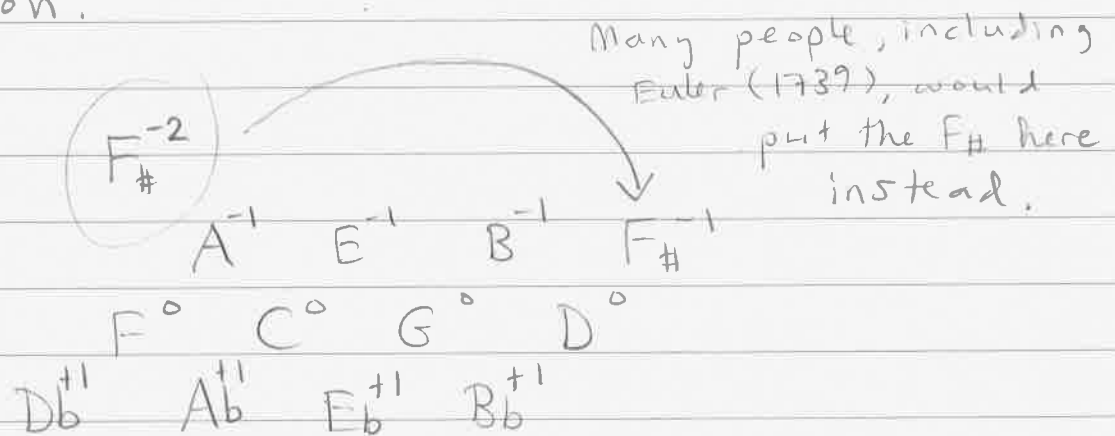 on.
Many people, including
Euler (1739), would
put the F# here
instead.
F#⁻²
A⁻¹ E⁻¹ B⁻¹ F#⁻¹
F⁰ C⁰ G⁰ D⁰
Db⁺¹ Ab⁺¹ Eb⁺¹ Bb⁺¹